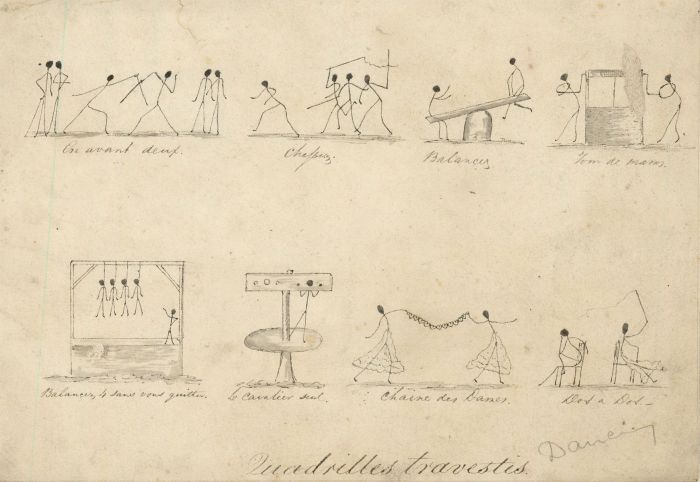 En avant deux.
Chassez.
Balancez
Tour de mains.
Balancez, 4 sans vous quitter.
Le Cavalier seul.
Chaîne des Dames.
Dos à Dos-
Quadrilles travestis.